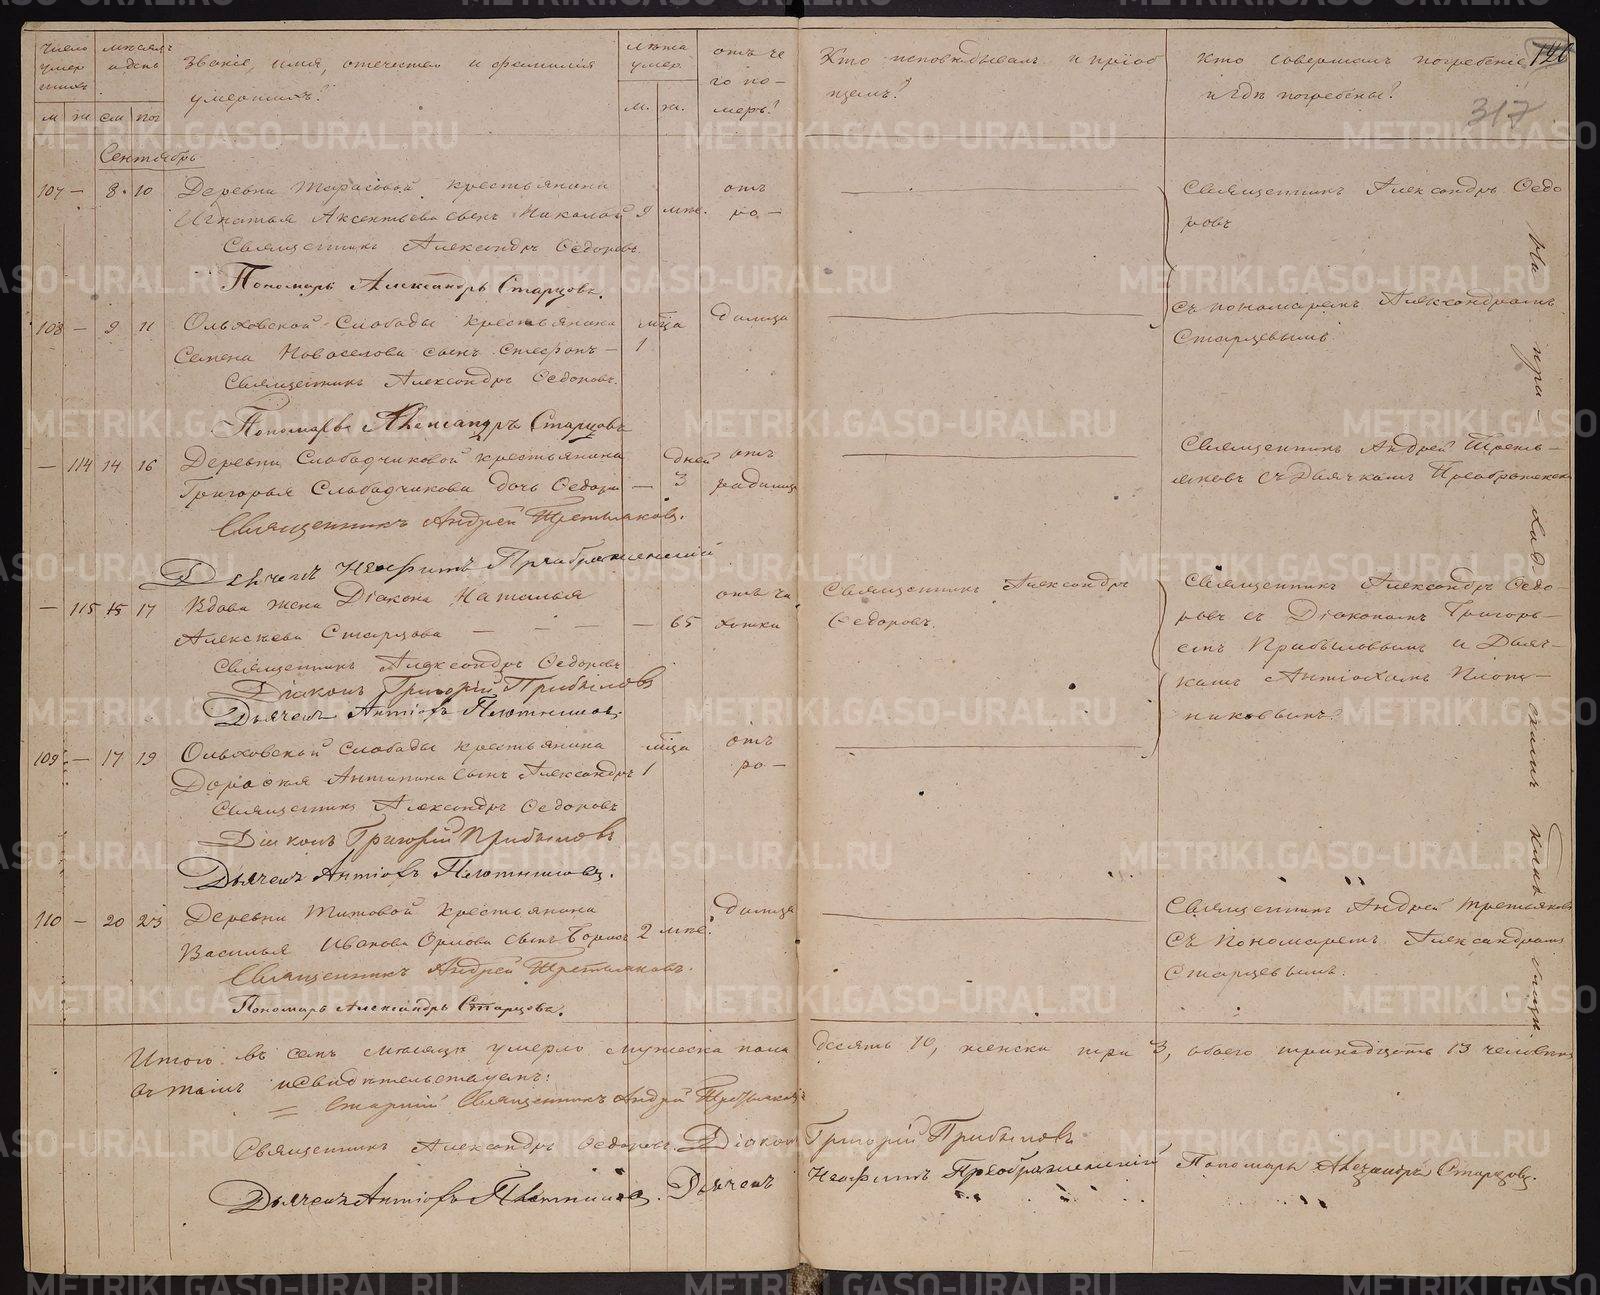 Число умер шихъ
мѣсяцъ и день
Званіе, имя, отечество и фамилія умершихъ?
лѣта умер.
отъ чего померъ?
Кто исповѣдывалъ и пріобщалъ?
кто совершалъ погребеніе и гдѣ погребены?
126
317
м ж см пог
м. ж.
Сентябрь
107 — 8 10 Деревни Тарасовой крестьянина
Игнатья Аксентьева сынъ Николай 9 мѣс. отъ ро —
Священникъ Александръ Ѳедоровъ
Пономарь Александръ Старцовъ.
Священникъ Александръ Ѳедо
ровъ
съ пономаремъ Александромъ
Старцевымъ
108 — 9 11 Ольховской Слободы крестьянина мѣсца родимца
Семена Новоселова сынъ Стефанъ — 1
Священникъ Александръ Ѳедоровъ.
Пономарь Александръ Старцовъ
— 114 14 16 Деревни Слободчиковой крестьянина дней отъ
Григорья Слободчикова дочь Ѳедора — 3 родимца
Священникъ Андрей Третьяковъ.
Дьячекъ Неофитъ Преображенскій
Священникъ Андрей Треть—
яковъ съ Дьячкомъ Преображенск
— 115 15 17 Вдова жена Діакона Наталья отъ ча
Алексѣева Старцова — — — — 65 хотки
Священникъ Александръ Ѳедоровъ
Діаконъ Григорій Прибыловъ
Дьячекъ Антіохъ Плотниковъ.
Священникъ Александръ
Ѳедоровъ.
Священникъ Александръ Ѳедо—
ровъ съ Діакономъ Григорь—
емъ Прибыловымъ и Дьяч—
комъ Антіохомъ Плот—
никовымъ
109 — 17 19 Ольховской Слободы крестьянина мѣсца отъ
Дороѳея Антипина сынъ Александръ 1 ро —
Священникъ Александръ Ѳедоровъ
Діаконъ Григорій Прибыловъ
Дьячекъ Антіохъ Плотниковъ.
110 — 20 23 Деревни Титовой крестьянина родимца
Василья Иванова Орлова сынъ Борисъ 2 мѣс.
Священникъ Андрей Третьяковъ.
Пономарь Александръ Старцовъ.
Священникъ Андрей Третьяковъ
съ Пономаремъ Александромъ
Старцевымъ.
На при — ход — скомъ клад бищи
Итого въ семъ мѣсяцѣ умерло мужеска пола десять 10, женска три 3, обоего тринадцать 13 человѣкъ
въ томъ и свидѣтельствуемъ:
Старшій Священникъ Андрей Третьяковъ
Священникъ Александръ Ѳедоровъ. Діаконъ Григорій Прибыловъ
Дьячекъ Антіохъ Плотниковъ. Дьячекъ Неофитъ Преображенскій Пономарь Александръ Старцовъ.
METRIKI.GASO-URAL.RU